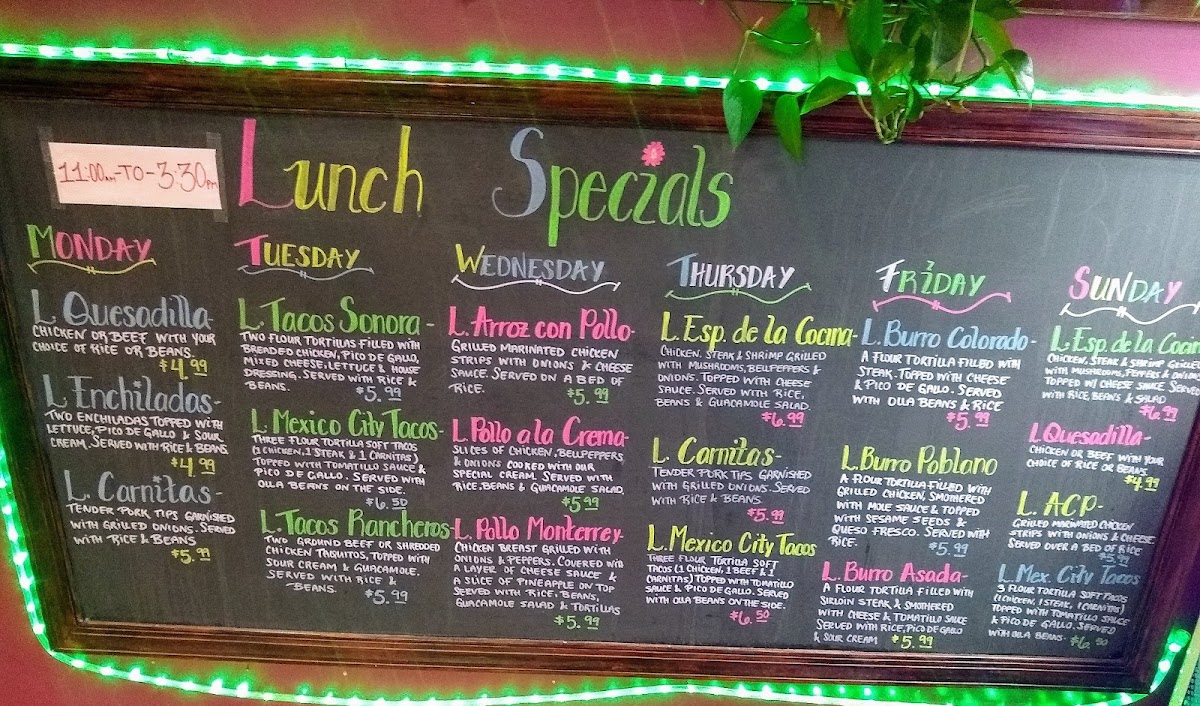 11:00AM-TO-3:30PM
Lunch Specials
MONDAY
L. Quesadilla-
CHICKEN OR BEEF WITH YOUR
CHOICE OF RICE OR BEANS.
$4.99
L. Enchiladas-
TWO ENCHILADAS TOPPED WITH
LETTUCE, PICO DE GALLO & SOUR
CREAM, SERVED WITH RICE & BEANS
$4.99
L. Carnitas-
TENDER PORK TIPS GARNISHED
WITH GRILLED ONIONS. SERVED
WITH RICE & BEANS
$5.99
TUESDAY
L. Tacos Sonora-
TWO FLOUR TORTILLAS FILLED WITH
BREADED CHICKEN, PICO DE GALLO,
MIXED CHEESE, LETTUCE & HOUSE
DRESSING. SERVED WITH RICE &
BEANS.
$5.99
L. Mexico City Tacos-
THREE FLOUR TORTILLA SOFT TACOS
(1 CHICKEN, 1 STEAK & 1 CARNITAS)
TOPPED WITH TOMATILLO SAUCE &
PICO DE GALLO. SERVED WITH
OLLA BEANS ON THE SIDE.
$6.50
L. Tacos Rancheros-
TWO GROUND BEEF OR SHREDDED
CHICKEN TAQUITOS, TOPPED WITH
SOUR CREAM & GUACAMOLE.
SERVED WITH RICE &
BEANS.
$5.99
WEDNESDAY
L. Arroz con Pollo-
GRILLED MARINATED CHICKEN
STRIPS WITH ONIONS & CHEESE
SAUCE. SERVED ON A BED OF
RICE.
$5.99
L. Pollo a la Crema-
SLICES OF CHICKEN, BELLPEPPERS
& ONIONS COOKED WITH OUR
SPECIAL CREAM. SERVED WITH
RICE, BEANS & GUACAMOLE SALAD.
$5.99
L. Pollo Monterrey-
CHICKEN BREAST GRILLED WITH
ONIONS & PEPPERS. COVERED W/
A LAYER OF CHEESE SAUCE &
A SLICE OF PINEAPPLE ON TOP
SERVED WITH RICE, BEANS,
GUACAMOLE SALAD & TORTILLAS
$5.99
THURSDAY
L. Esp. de la Cocina-
CHICKEN, STEAK & SHRIMP GRILLED
WITH MUSHROOMS, BELLPEPPERS &
ONIONS. TOPPED WITH CHEESE
SAUCE. SERVED WITH RICE,
BEANS & GUACAMOLE SALAD.
$6.99
L. Carnitas-
TENDER PORK TIPS GARNISHED
WITH GRILLED ONIONS. SERVED
WITH RICE & BEANS
$5.99
L. Mexico City Tacos
THREE FLOUR TORTILLA SOFT
TACOS (1 CHICKEN, 1 BEEF & 1
CARNITAS) TOPPED WITH TOMATILLO
SAUCE & PICO DE GALLO. SERVED
WITH OLLA BEANS ON THE SIDE.
$6.50
FRIDAY
L. Burro Colorado-
A FLOUR TORTILLA FILLED WITH
STEAK. TOPPED WITH CHEESE
& PICO DE GALLO. SERVED
WITH OLLA BEANS & RICE
$5.99
L. Burro Poblano
A FLOUR TORTILLA FILLED WITH
GRILLED CHICKEN, SMOTHERED
WITH MOLE SAUCE & TOPPED
WITH SESAME SEEDS &
QUESO FRESCO. SERVED WITH
RICE.
$5.99
L. Burro Asada-
A FLOUR TORTILLA FILLED WITH
SIRLOIN STEAK & SMOTHERED
WITH CHEESE & TOMATILLO SAUCE
SERVED WITH RICE, PICO DE GALLO
& SOUR CREAM $5.99
SUNDAY
L. Esp. de la Cocin
CHICKEN, STEAK & SHRIMP GRILLED
WITH MUSHROOMS, PEPPERS & ONIONS
TOPPED W/ CHEESE SAUCE. SERVED
WITH RICE, BEANS & SALAD
$6.99
L. Quesadilla-
CHICKEN OR BEEF WITH YOUR
CHOICE OF RICE OR BEANS.
$4.99
L. ACP-
GRILLED MARINATED CHICKEN
STRIPS WITH ONIONS & CHEESE
SERVED OVER A BED OF RICE
$5.99
L. Mex. City Tacos
3 FLOUR TORTILLA SOFT TACOS
(1 CHICKEN, 1 STEAK, 1 CARNITAS)
TOPPED WITH TOMATILLO SAUCE
& PICO DE GALLO. SERVED
WITH OLLA BEANS- $6.50